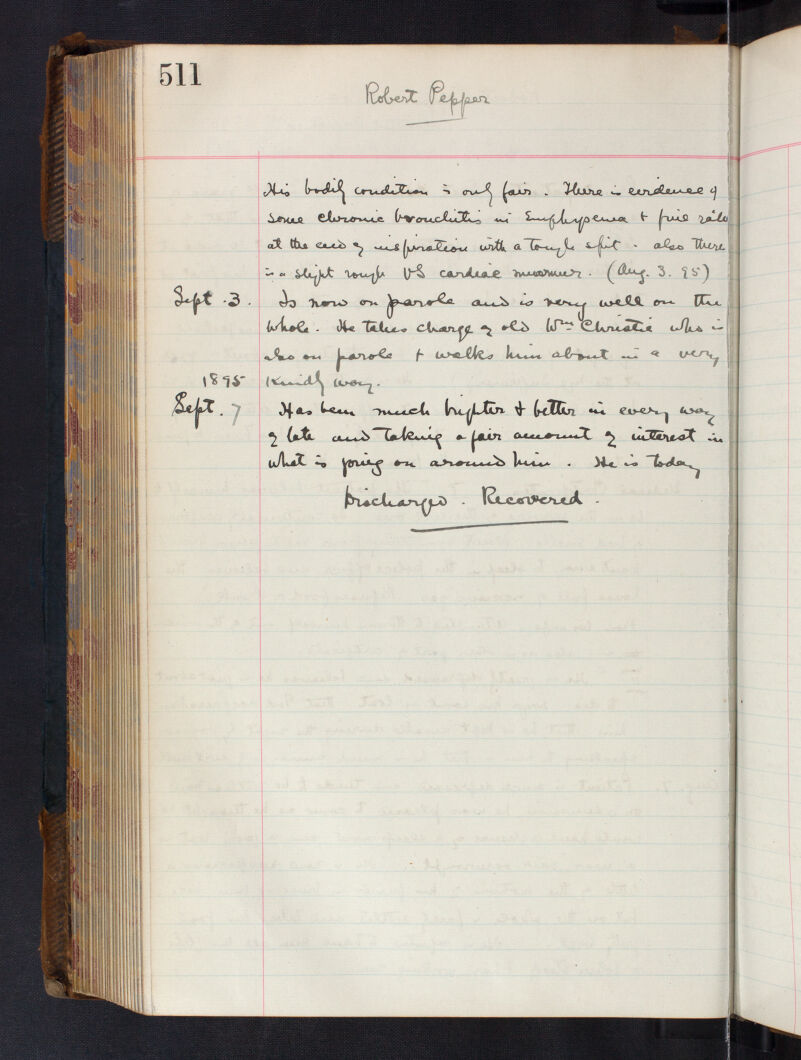 511
Robert Pepper
His bodily condition is only fair. There is evidence of
some chronic bronchitis in Emphysema & fine râles
at the end of inspiration with a tough spit. also there
is a slight rough VS cardiac murmur. (Aug. 3. 95)
Sept. 3. Is now on parole and is very well on the
whole. He takes charge of old Wm Christie who is
also on parole & walks him about in a very
1895 kindly way.
Sept. 7 Has been much brighter & better in every way
of late and taking a fair amount of interest in
what is going on around him. He is today
Discharged. Recovered.